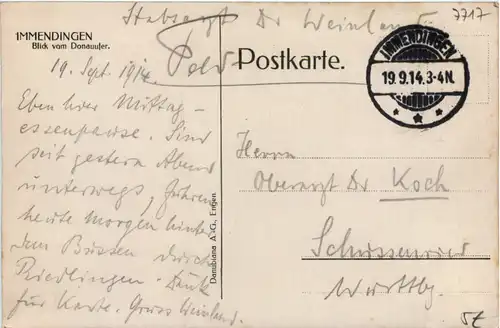 Stabsarzt Dr Weinland
7717
IMMENDINGEN
Blick vom Donauufer.
Feld
Postkarte.
IMMENDINGEN
19.9.14.3-4N.
19. Sept. 1914.
Eben hier Mittag-
essenpause. Sind
seit gestern Abend
unterwegs, fuhren
heute morgen hinter
dem Bussen durch
Riedlingen. Dank
für Karte. Gruss Weinland.
Danubiana A.-G.,
Herrn
Oberarzt Dr Koch
Schussenried
Württbg.